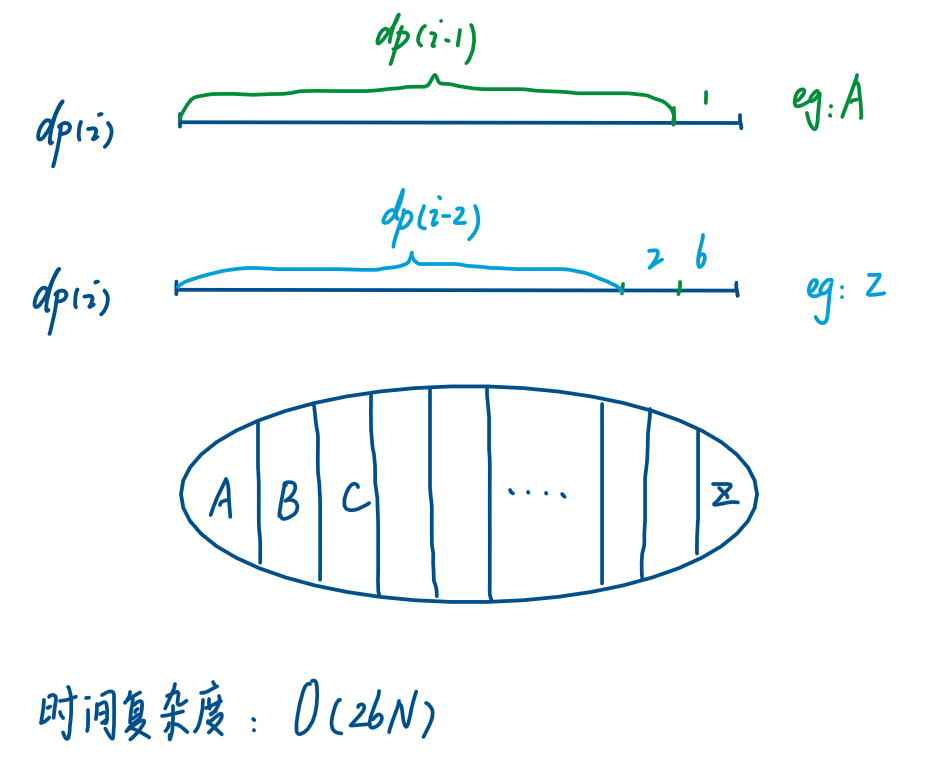 dp(i-1)
dp(i) 1 eg: A
dp(i-2)
dp(i) 2 6 eg: Z
A B C .... Z
时间复杂度: O(26N)